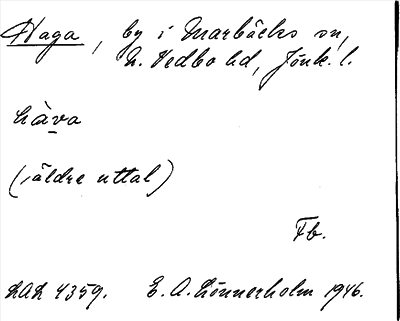 Haga, by i Marbäcks sn,
N. Vedbo hd, Jönk. l.
hàva
(i äldre uttal)
Fb.
LAL 4359. E. A. Lönnerholm 1946.